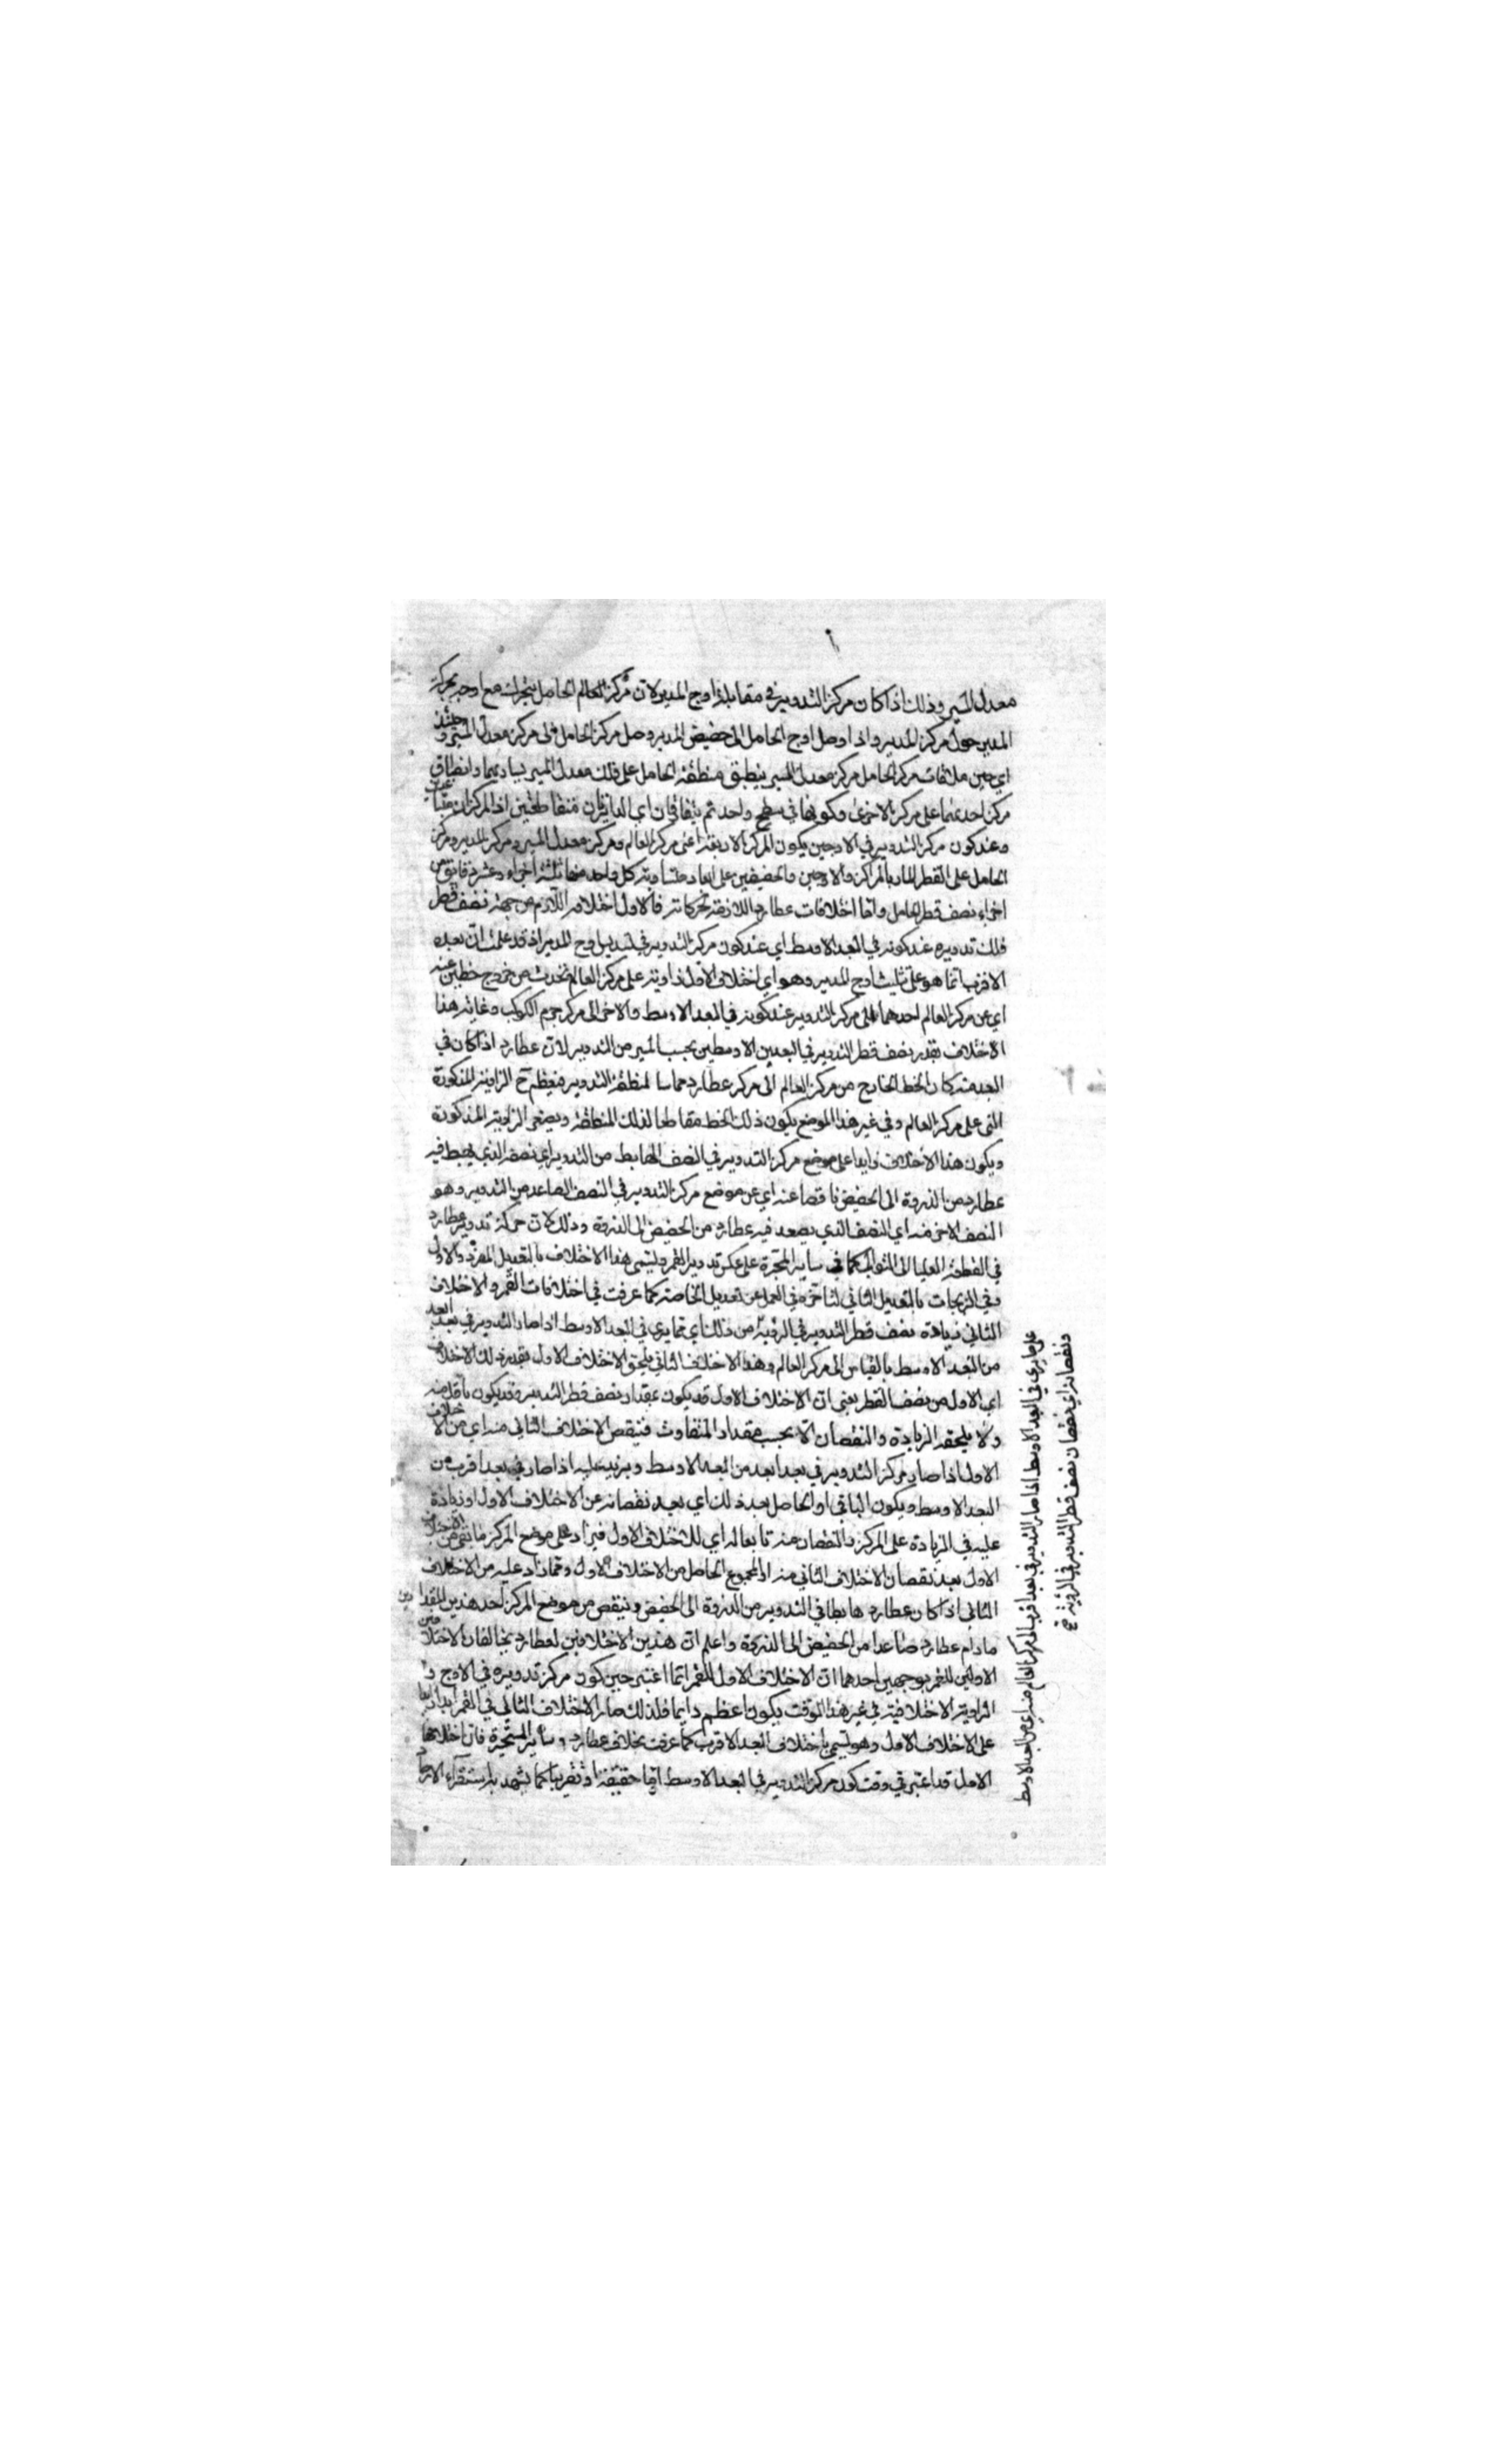 معدل المسير وذلك اذا كان مركز التدوير في مقابلة اوج المدير لان مركز العالم الحامل يتحرك مع اوجه بحركة
المدير حول مركز المدير واذا وصل اوج الحامل الى حضيض المدير وصل مركز الحامل الى مركز معدل المسير وحينئذ
اي حين ملاقات مركز الحامل مركز معدل المسير ينطبق منطقة الحامل على فلك معدل المسير لتساويهما وانطباق
مركز احديهما على مركز الاخرى وكونهما في سطح واحد ثم يتفارقان اي الدايرتان متقاطعتين اذ المركزان
وعند كون مركز التدوير في الاوجين يكون المراكز الاربعة اعني مركز العالم ومركز معدل المسير ومركز المدير ومركز
الحامل على القطر المار بالمراكز والاوجين والحضيضين على ابعاد متساوية كل واحد منها ثلثة اجزاء وعشر دقايق من
اجزاء نصف قطر الحامل واما اختلافات عطارد اللازمة بحركاته فالاول اختلافه اللازم من جهة نصف قطر
فلك تدويره عند كونه في البعد الاوسط اي عند كون مركز التدوير في تسديس اوج المدير اذ قد علمت ان بعده
الاقرب انما هو على تثليث اوج المدير وهو اي الاختلاف الاول زاوية على مركز العالم تحدث من خروج خطين عنه
اي عن مركز العالم احدهما الى مركز التدوير عند كونه في البعد الاوسط والاخر الى مركز جرم الكوكب وغاية هذا
الاختلاف بقدر نصف قطر التدوير في البعدين الاوسطين بحسب المسير من التدوير لان عطارد اذا كان في
البعد منه كان الخط الخارج من مركز العالم الى مركز عطارد مماسا لمنطقة التدوير فيعظم ح الزاوية المذكورة
التي على مركز العالم وفي غير هذا الموضع يكون ذلك الخط مقاطعا لتلك المنطقة ويصغر الزاوية المذكورة
ويكون هذا الاختلاف زايدا على موضع مركز التدوير في النصف الهابط من التدوير اي نصفه الذي يهبط فيه
عطارد من الذروة الى الحضيض ناقصا عنه اي عن موضع مركز التدوير في النصف الصاعد من التدوير وهو
النصف الاخر منه اي النصف الذي يصعد فيه عطارد من الحضيض الى الذروة وذلك لان حركة تدوير عطارد
في القطعة العليا الى التوالي كما في ساير المتحيرة على عكس تدوير القمر ويسمى هذا الاختلاف بالتعديل المفرد والاول
وفي الزيجات بالتعديل الثاني لتأخره في العمل عن تعديل الخاصة كما عرفت في اختلافات القمر والاختلاف
الثاني زيادة نصف قطر التدوير في الرؤية من ذلك اي مما يرى في البعد الاوسط اذا صار التدوير في بعد ابعد
من البعد الاوسط بالقياس الى مركز العالم وهذا الاختلاف الثاني يلحق الاختلاف الاول بقدر ذلك الاختلاف
اي الاول من نصف القطر يعني ان الاختلاف الاول قد يكون بمقدار نصف قطر التدوير وقد يكون باقل منه
ولا يلحقه الزيادة والنقصان الا بحسب مقداره المتفاوت فينقص الاختلاف الثاني منه اي من الاختلاف
الاول اذا صار مركز التدوير في بعد ابعد من البعد الاوسط ويزيد عليه اذا صار في بعد اقرب من
البعد الاوسط ويكون الباقي او الحاصل بعد ذلك اي بعد نقصانه عن الاختلاف الاول او زيادة
عليه في الزيادة على المركز والنقصان منه تابعا له اي للاختلاف الاول فيزاد على موضع المركز ما بقي من الاختلاف
الاول بعد نقصان الاختلاف الثاني منه او المجموع الحاصل من الاختلاف الاول ومما زاد عليه من الاختلاف
الثاني اذا كان عطارد هابطا في التدوير من الذروة الى الحضيض وينقص من موضع المركز احد هذين المقدارين
مادام عطارد صاعدا من الحضيض الى الذروة واعلم ان هذين الاختلافين لعطارد يخالفان الاختلافين
الاولين للقمر بوجهين احدهما ان الاختلاف الاول للقمر انما اعتبر حين كون مركز تدويره في الاوج و
الزاوية الاختلافية في غير هذا الوقت يكون اعظم دايما فلذلك صار الاختلاف الثاني في القمر زايدا
على الاختلاف الاول وهو يسمى باختلاف البعد الاقرب كما عرفت بخلاف عطارد وساير المتحيرة فان اختلافها
الاول قد اعتبر في وقت كون مركز التدوير في البعد الاوسط اما حقيقة او تقريبا كما يشهد به استقراء
ونقصانه اي نقصان نصف قطر التدوير في الرؤية
على ما يرى في البعد الاوسط اذا صار التدوير في بعد اقرب الى مركز العالم منه اي من البعد الاوسط